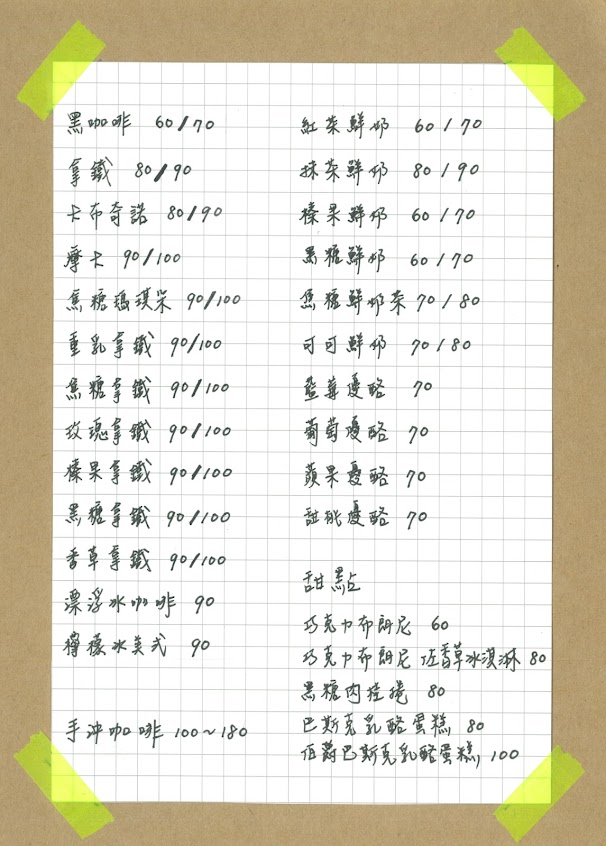 黑咖啡 60/70
拿鐵 80/90
卡布奇諾 80/90
摩卡 90/100
焦糖瑪琪朵 90/100
重乳拿鐵 90/100
焦糖拿鐵 90/100
玫瑰拿鐵 90/100
榛果拿鐵 90/100
黑糖拿鐵 90/100
香草拿鐵 90/100
漂浮冰咖啡 90
檸檬冰美式 90
手沖咖啡 100~180
紅茶鮮奶 60/70
抹茶鮮奶 80/90
榛果鮮奶 60/70
黑糖鮮奶 60/70
焦糖鮮奶茶 70/80
可可鮮奶 70/80
藍莓優酪 70
葡萄優酪 70
蘋果優酪 70
甜桃優酪 70
甜點
巧克力布朗尼 60
巧克力布朗尼佐香草冰淇淋 80
黑糖肉桂捲 80
巴斯克乳酪蛋糕 80
伯爵巴斯克乳酪蛋糕 100